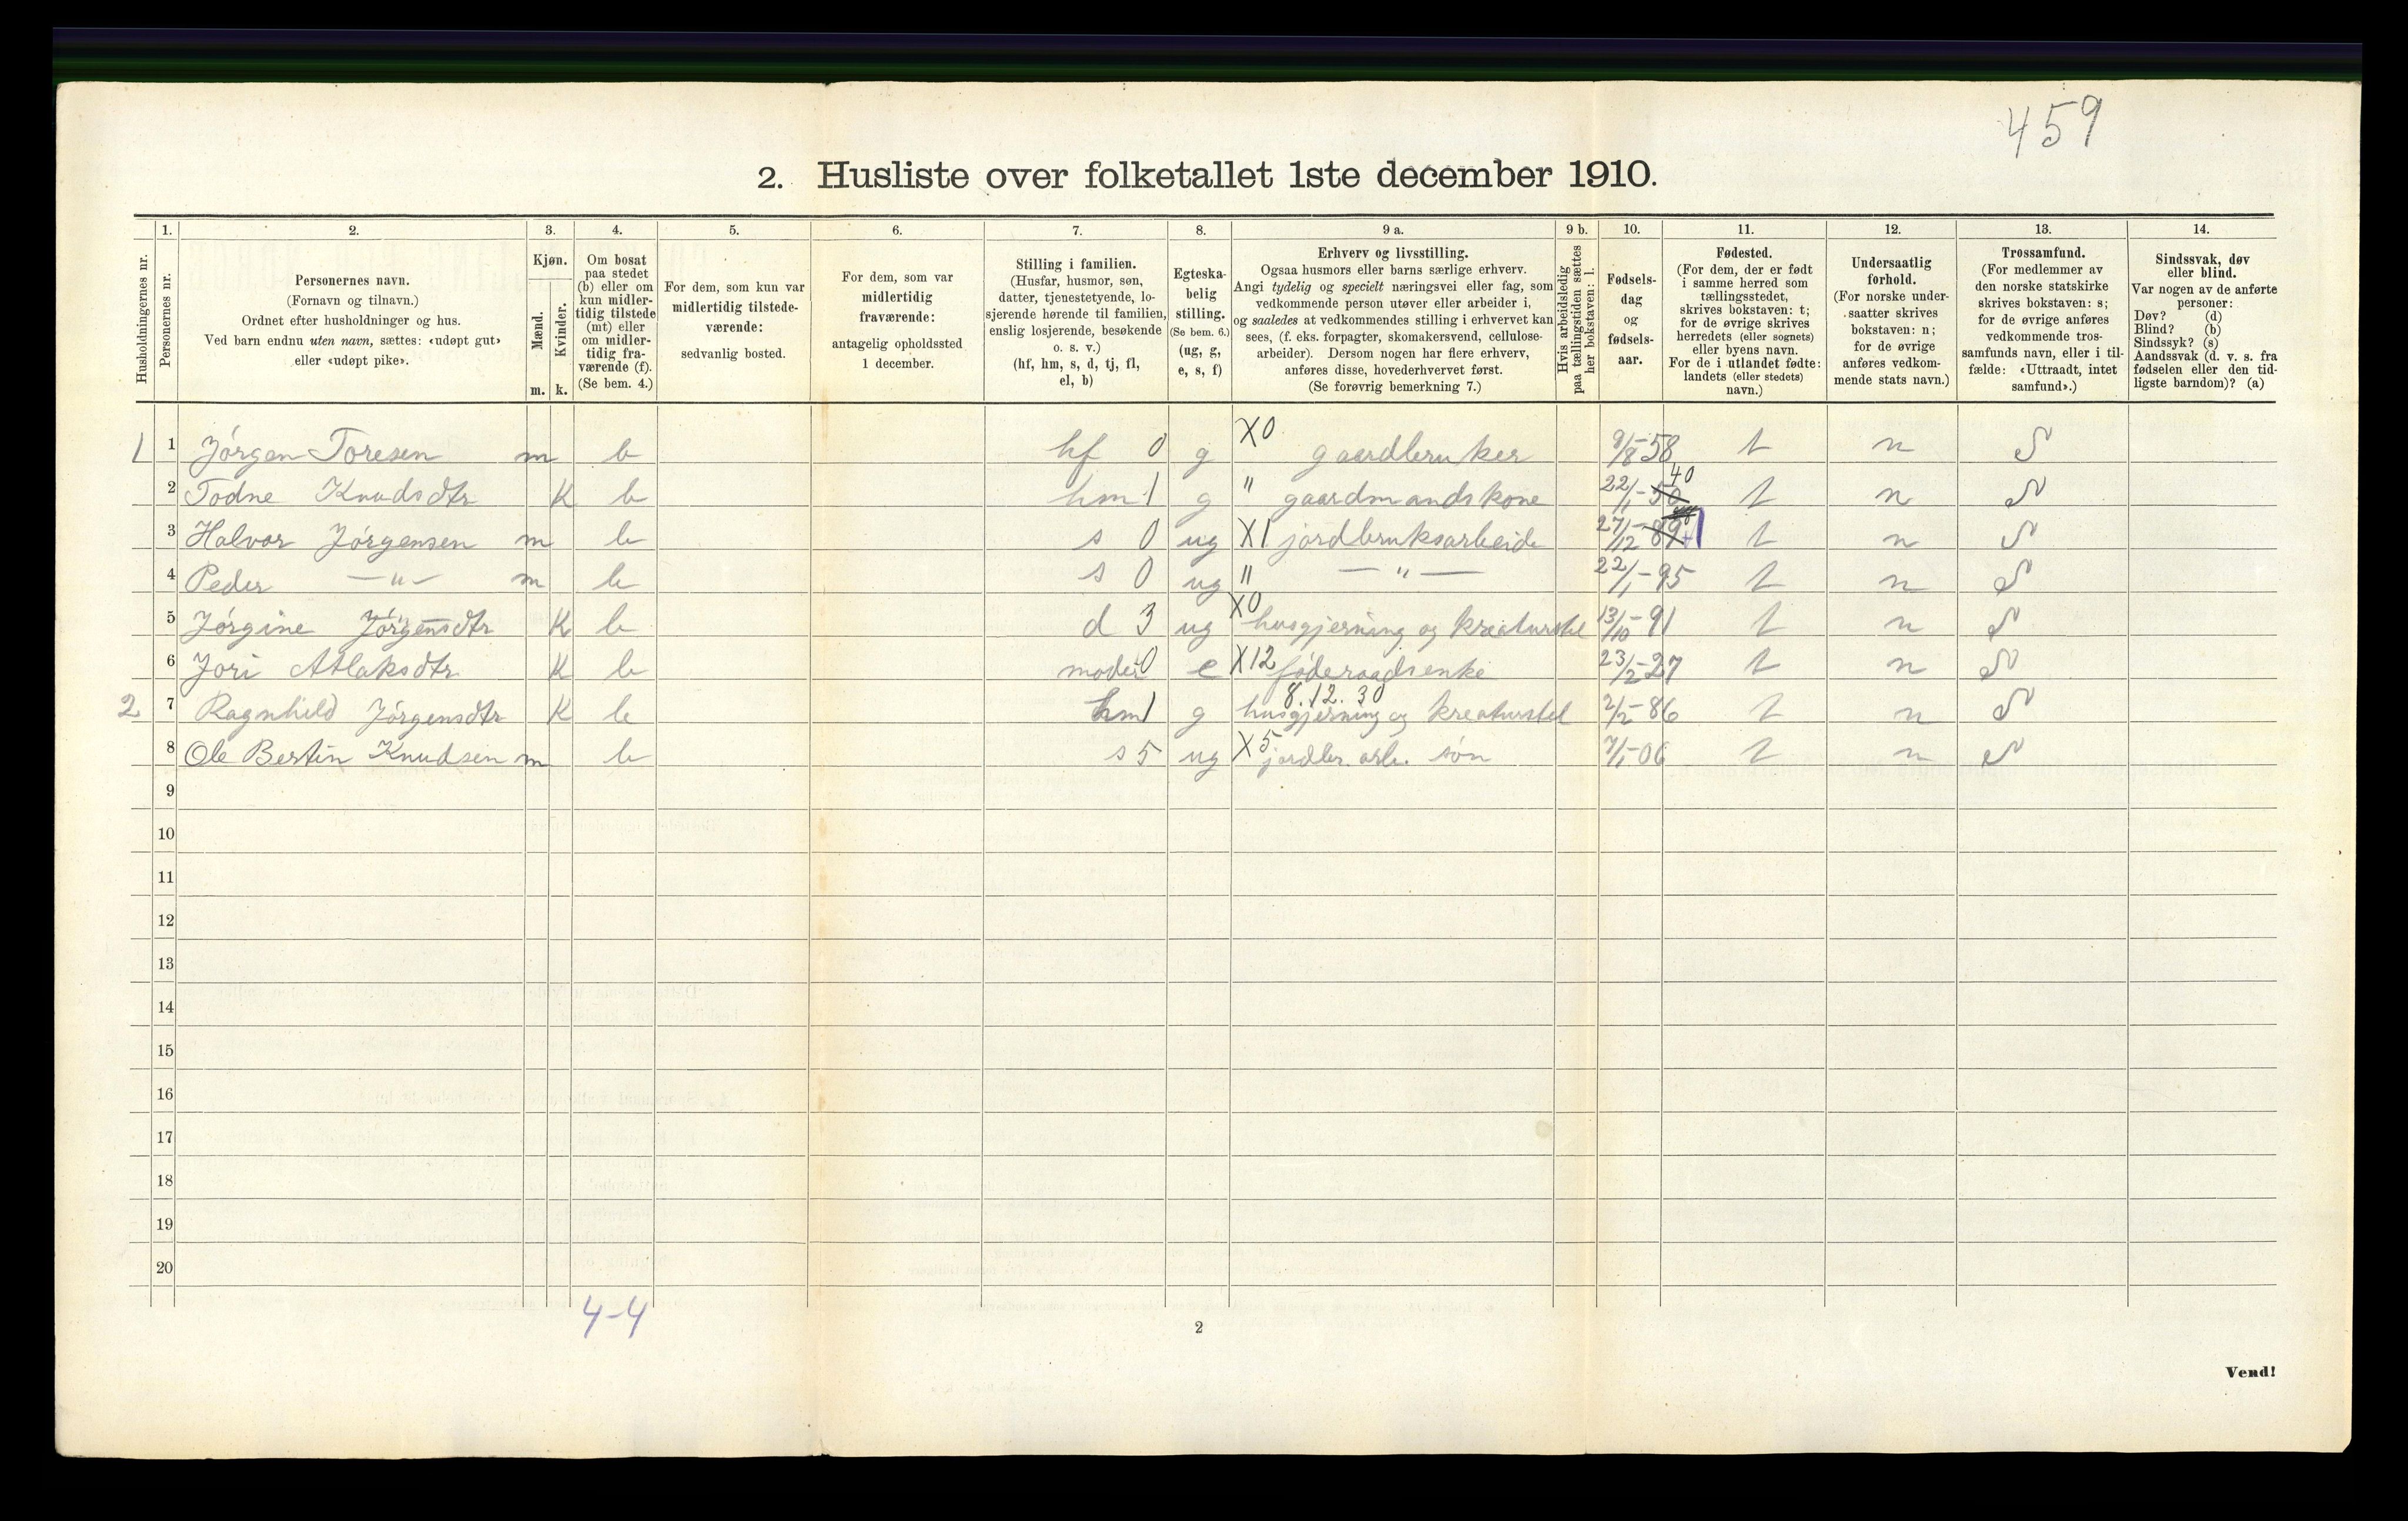 459
2. Husliste over folketallet 1ste december 1910.
Husholdningernes nr.
1. 2. 3. 4. 5. 6. 7. 8. 9 a. 9 b. 10. 11. 12. 13. 14.
Personernes nr.
Personernes navn.
(Fornavn og tilnavn.)
Ordnet efter husholdninger og hus.
Ved barn endnu uten navn, sættes: «udøpt gut»
eller «udøpt pike».
Kjøn.
Mænd.
Kvinder.
m. k.
Om bosat
paa stedet
(b) eller om
kun midler-
tidig tilstede
(mt) eller
om midler-
tidig fra-
værende (f).
(Se bem. 4.)
For dem, som kun var
midlertidig tilstede-
værende:
sedvanlig bosted.
For dem, som var
midlertidig
fraværende:
antagelig opholdssted
1 december.
Stilling i familien.
(Husfar, husmor, søn,
datter, tjenestetyende, lo-
sjerende hørende til familien,
enslig losjerende, besøkende
o. s. v.)
(hf, hm, s, d, tj, fl,
el, b)
Egteska-
belig
stilling.
(Se bem. 6.)
(ug, g,
e, s, f)
Erhverv og livsstilling.
Ogsaa husmors eller barns særlige erhverv.
Angi tydelig og specielt næringsvei eller fag, som
vedkommende person utøver eller arbeider i,
og saaledes at vedkommendes stilling i erhvervet kan
sees, (f. eks. forpagter, skomakersvend, cellulose-
arbeider). Dersom nogen har flere erhverv,
anføres disse, hovederhvervet først.
(Se forøvrig bemerkning 7.)
Hvis arbeidsledig
paa tællingstiden sættes
her bokstaven: l.
Fødsels-
dag
og
fødsels-
aar.
Fødested.
(For dem, der er født
i samme herred som
tællingsstedet,
skrives bokstaven: t;
for de øvrige skrives
herredets (eller sognets)
eller byens navn.
For de i utlandet fødte:
landets (eller stedets)
navn.)
Undersaatlig
forhold.
(For norske under-
saatter skrives
bokstaven: n;
for de øvrige
anføres vedkom-
mende stats navn.)
Trossamfund.
(For medlemmer av
den norske statskirke
skrives bokstaven: s;
for de øvrige anføres
vedkommende tros-
samfunds navn, eller i til-
fælde: «Uttraadt, intet
samfund».)
Sindssvak, døv
eller blind.
Var nogen av de anførte
personer:
Døv? (d)
Blind? (b)
Sindssyk? (s)
Aandssvak (d. v. s. fra
fødselen eller den tid-
ligste barndom)? (a)
1 1 Jørgen Toresen m b hf 0 g X0 gaardbruker 9/8-58 t n S
2 Todne Knudsdtr K b hm 1 g " gaardmandskone 22/1-50 40 t n S
3 Halvor Jørgensen m b s 0 ug X1 jordbruksarbeide 27/12-89 t n S
4 Peder —"— m b s 0 ug " —"— 22/1-95 t n S
5 Jørgine Jørgensdtr K b d 3 ug X0 husgjerning og kreaturstel 13/10-91 t n S
6 Jori Atlaksdtr K b moder 0 e X12 føderaadsenke 23/2-27 t n S
2 7 Ragnhild Jørgensdtr K b hm 1 g 8.12.30 husgjerning og kreaturstel 2/2-86 t n S
8 Ole Bertin Knudsen m b s 5 ug X5 jordbr. arb. søn 7/1-06 t n S
9
10
11
12
13
14
15
16
17
18
19
20
4-4
2
Vend!